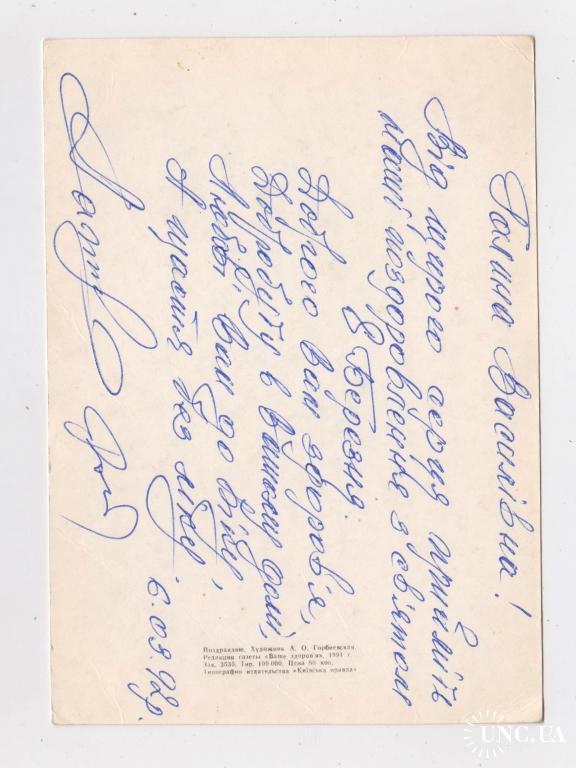 Галина Василівна!
Від щирого серця прийміть
мої поздоровлення з святом
8 Березня.
Доброго Вам здоров'я,
Добробуту в Вашому домі,
Любві Вам до віку,
А щастя без ліку.
6.03.92р.
Поздравляю. Художник А. О. Горбиевская.
Редакция газеты «Ваше здоров'я», 1991 г.
Зак. 3535. Тир. 100 000. Цена 80 коп.
Типография издательства «Київська правда»
UNC.UA